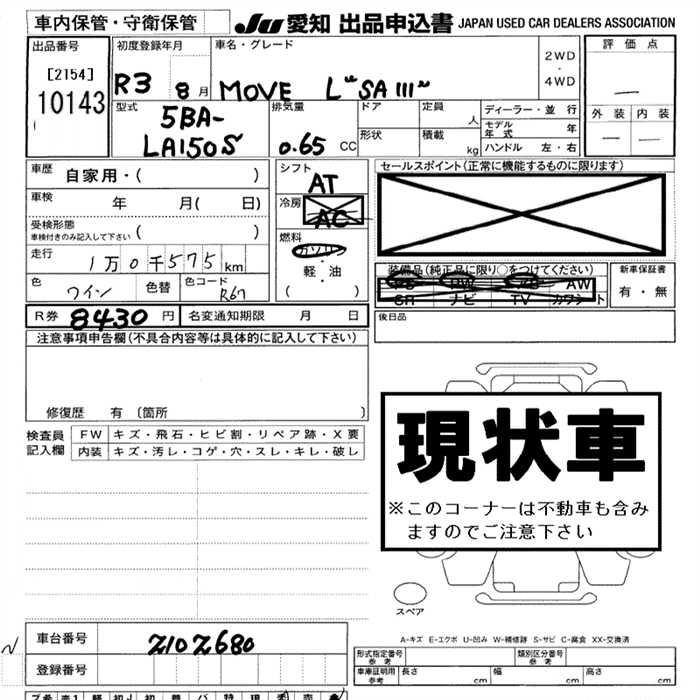 車内保管・守衛保管
JU 愛知 出品申込書 JAPAN USED CAR DEALERS ASSOCIATION
出品番号 初度登録年月 車名・グレード 評価点
[2154] 2WD・4WD
10143 R3 8月 MOVE L"SA III" —
型式 排気量 ドア 定員 人 ディーラー・並行 外装 内装
5BA- モデル年式 年 — —
LA150S 0.65 CC 形状 積載 kg ハンドル 左・右
車歴 自家用・( ) シフト AT セールスポイント(正常に機能するものに限ります)
車検 年 月( 日) 冷房 AC
受検形態 車検付きのみ記入して下さい ( ) 燃料 ガソリン・軽・油 ( )
走行 1万0千575km 装備品(純正品に限り○をつけてください) 新車保証書
色 ワイン 色替 色コード R67 PS PW AW 有・無
SR ナビ TV カワシート
R券 8430円 名変通知期限 月 日 後日品
注意事項申告欄(不具合内容等は具体的に記入して下さい)
修復歴 有 〔箇所 〕
検査員記入欄 FW キズ・飛石・ヒビ割・リペア跡・X要
内装 キズ・汚レ・コゲ・穴・スレ・キレ・破レ
現状車
※このコーナーは不動車も含みますのでご注意下さい
スペア
A-キズ E-エクボ U-凹み W-補修跡 S-サビ C-腐食 XX-交換済
車台番号 Z102680
登録番号
形式指定番号 参考 類別区分番号 参考
車庫証明用 参考 長さ cm 幅 cm 高さ cm